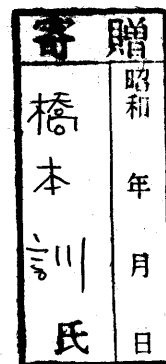 寄贈
昭和 年 月 日
橋本訓氏